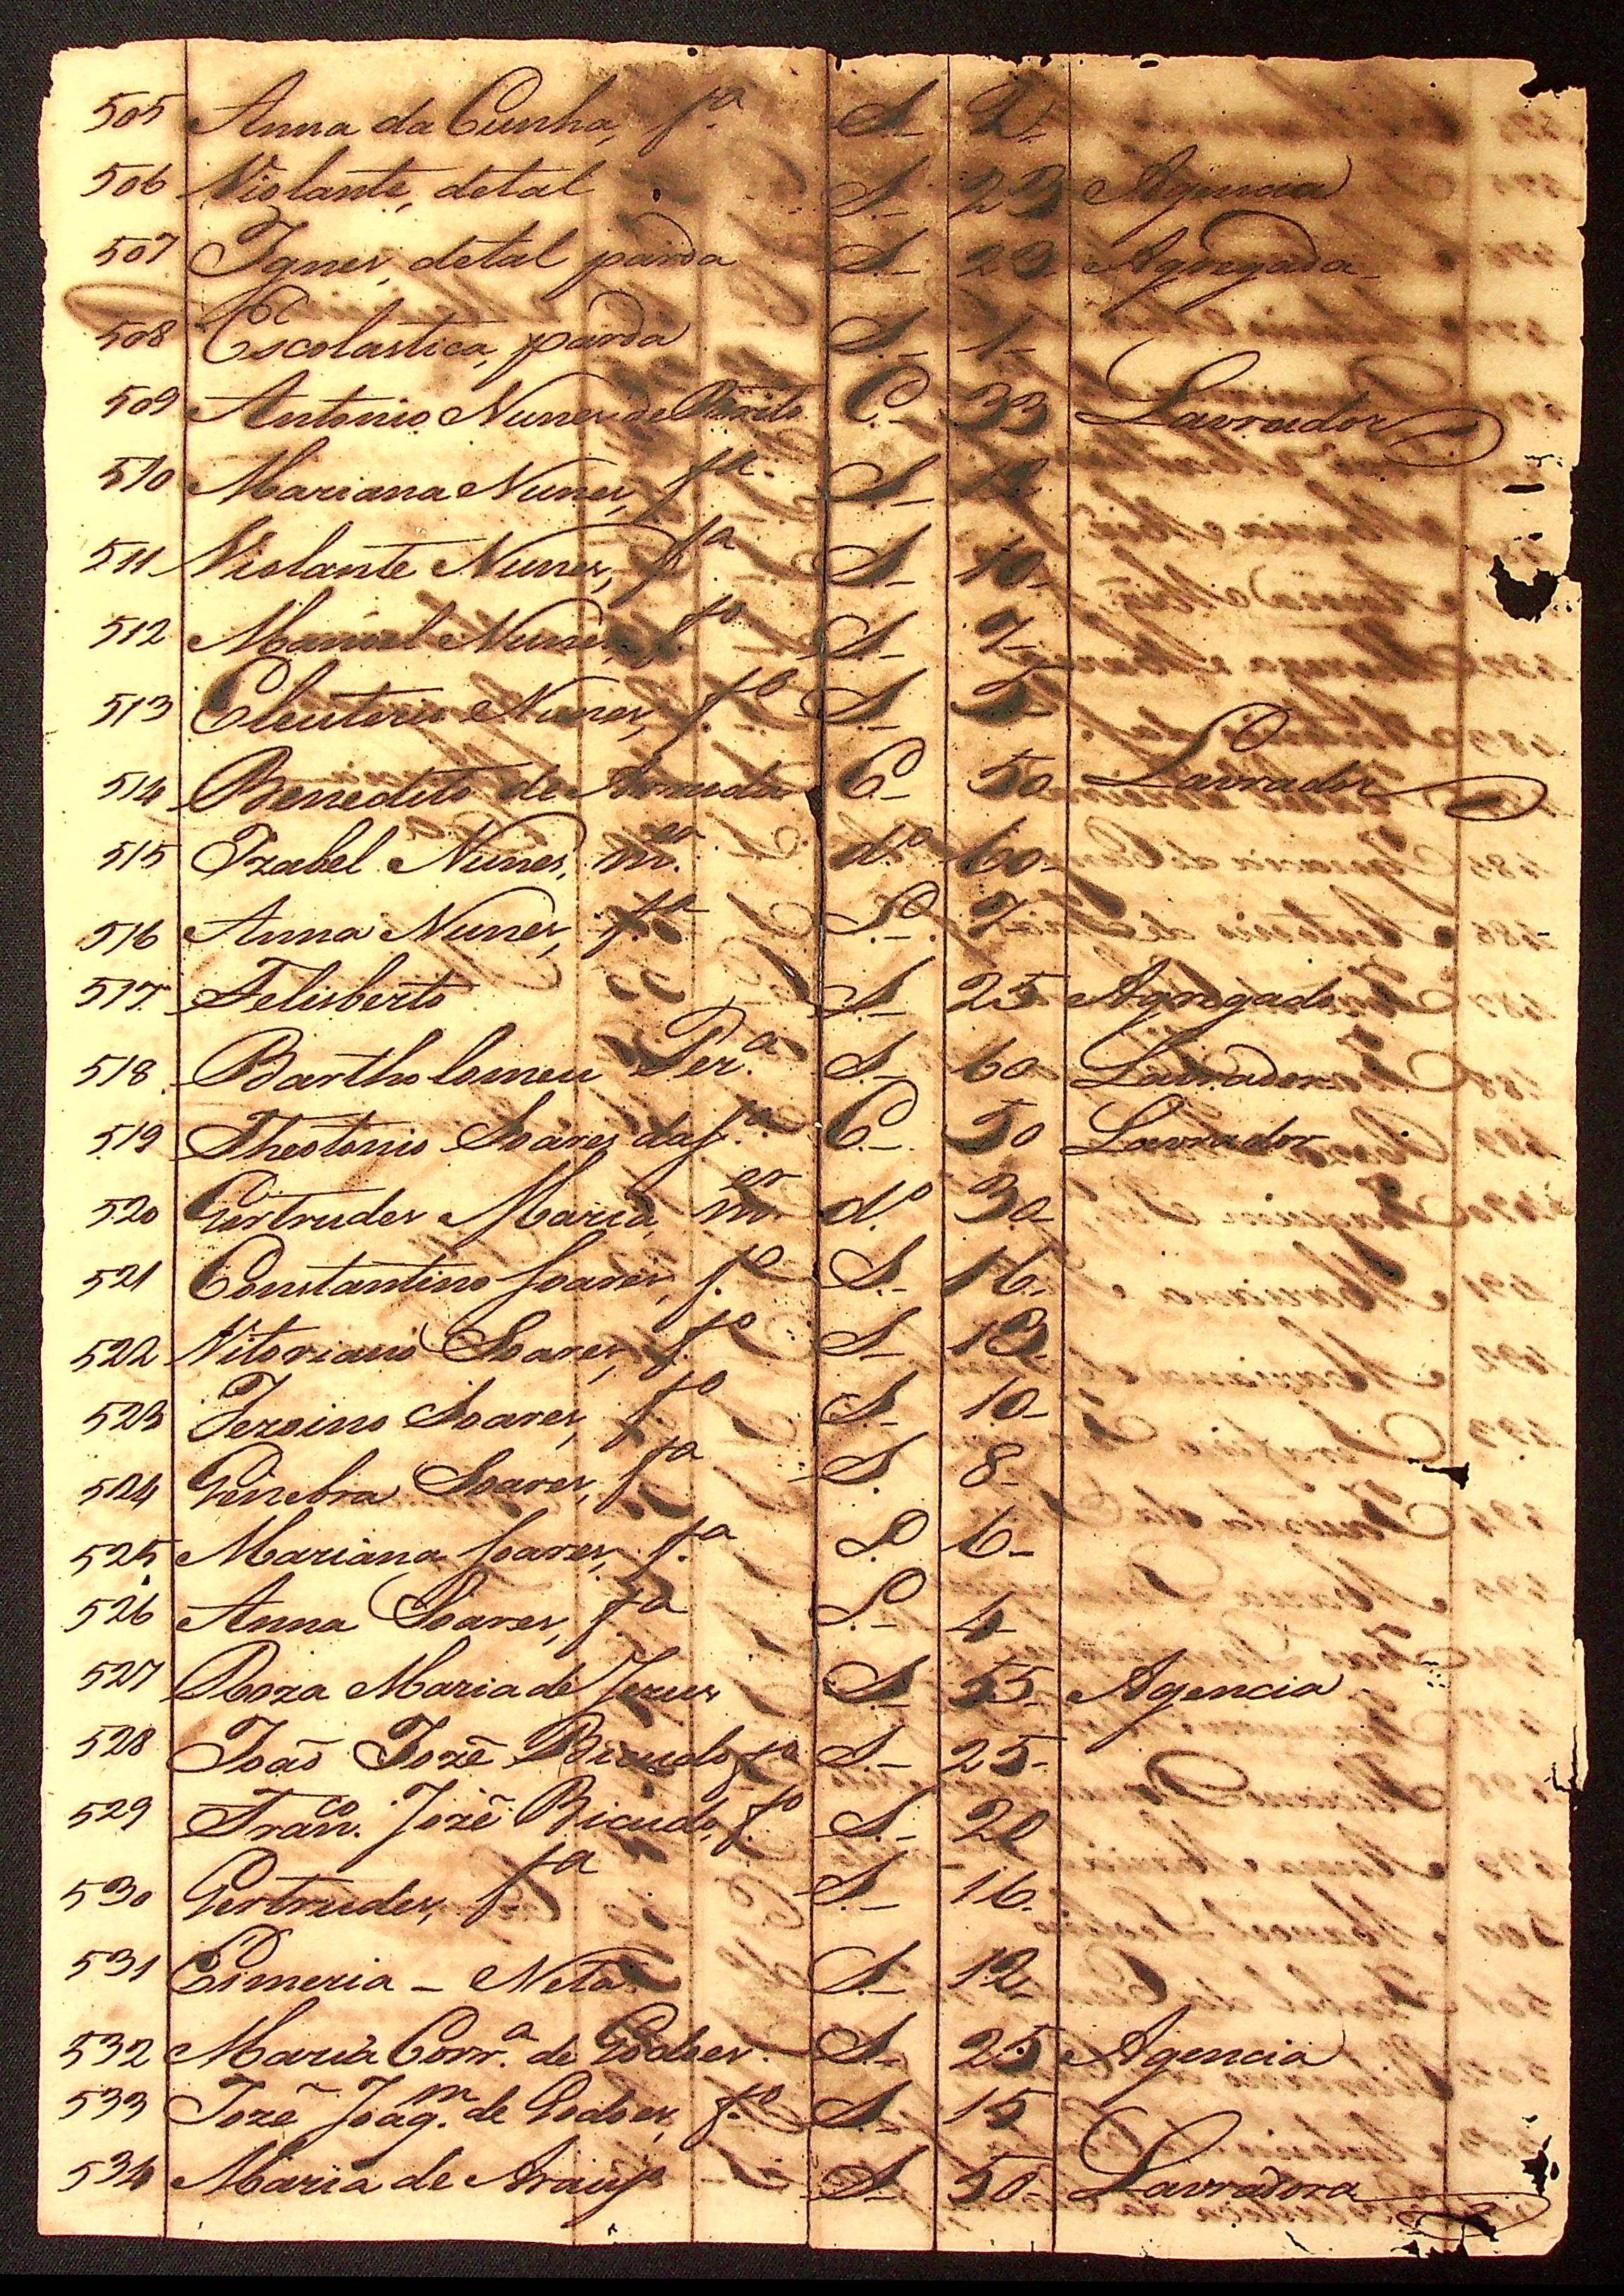 505 Anna da Cunha, fa. S.- 2.
506 Violante, de tal S.- 23 Agencia
507 Ignes, de tal parda S.- 23 Agregada
508 Escolastica, parda S.- 1-
509 Antonio Nunes de Brito C.- 33 Lavrador
510 Mariana Nunes, fa. S.-
511 Violante Nunes, fa. S.- 10-
512 Manuel Nunes, fo. S.- 7-
513 Eleuterio Nunes, fo. S.- 5-
514 Benedito de Arruda C.- 50 Lavrador
515 Izabel Nunes, mer. do. 60-
516 Anna Nunes, fa. S.-
517 Felisberto S.- 25 Agregado
518 Bartholomeu Pera. S.- 60 Lavrador
519 Theotonio Soares da fa. C.- 50 Lavrador
520 Gertrudes Maria, mer. do. 30-
521 Constantino Soares, fo. S.- 16-
522 Vitoriano Soares, fo. S- 13
523 Jeroino Soares, fo. S.- 10-
524 Genebra Soares, fa. S. 8-
525 Mariana Soares, fa. S. 6-
526 Anna Soares, fa. S.- 4-
527 Roza Maria de Jezus S.- 55- Agencia
528 João Jozé Bicudo fo. S.- 25-
529 Franco. Jozé Bicudo, fo. S.- 20
530 Gertrudes, fa. S.- 16.
531 Esmeria - Neta S.- 12-
532 Maria Corra. de Godoes. S.- 25 Agencia
533 Jozé Joaqm. de Godoes, fo. S.- 15
534 Maria de Araujo S.- 50- Lavradora